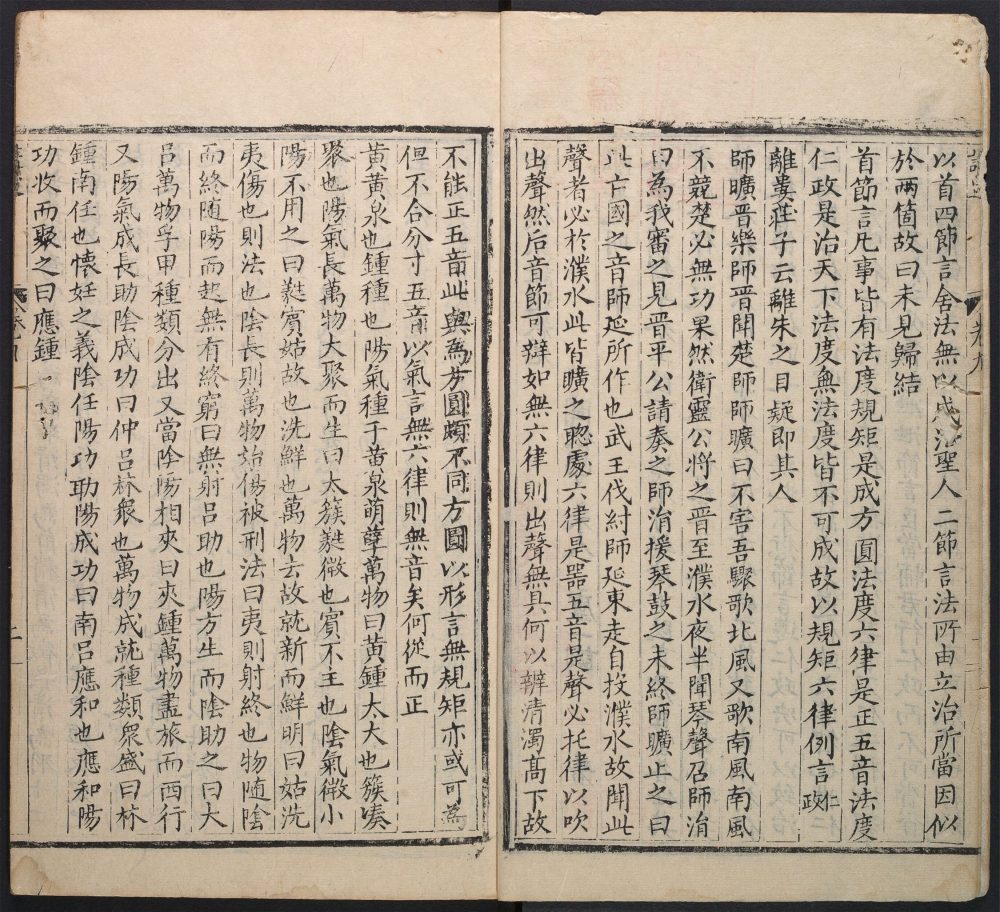 以首四節言舍法無以成治聖人二節言法所由立治所當因似
於两箇故曰未見歸結
首節言凡事皆有法度規矩是成方圓法度六律是正五音法度
仁政是治天下法度無法度皆不可成故以規矩六律例言仁政
離婁莊子云離朱之目疑即其人
師曠晋樂師晋聞楚師師曠曰不害吾驟歌北風又歌南風南風
不競楚必無功果然衛靈公將之晋至濮水夜半聞琴聲召師涓
曰為我審之見晋平公請奏之師涓援琴鼓之未終師曠止之曰
此亡國之音師延所作也武王伐紂師延東走自投濮水故聞此
聲者必於濮水此皆曠之聦處六律是器五音是聲必托律以吹
出聲然后音節可辯如無六律則出聲無具何以辨清濁髙下故
不能正五音此與為方圓頗不同方圓以形言無規矩亦或可為
但不合分寸五音以氣言無六律則無音矣何從而正
黄黄泉也鍾種也阳氣種于黄泉萌孽萬物曰黄鍾大大也簇凑
聚也陽氣長萬物大聚而生曰大簇蕤微也賓不王也陰氣微小
陽不用之曰蕤賓姑故也洗鮮也萬物去故就新而鮮明曰姑洗
夷傷也則法也陰長則萬物始傷被刑法曰夷則射終也物随陰
而終随陽而起無有終窮曰無射吕助也陽方生而陰助之曰大
吕萬物孚甲種類分出又當陰陽相夾曰夾鍾萬物盡旅而西行
又陽氣成長助陰成功曰仲吕林衆也萬物成就種類衆盛曰林
鍾南任也懷妊之義陰任陽功助陽成功曰南吕應和也應和陽
功收而聚之曰應鍾